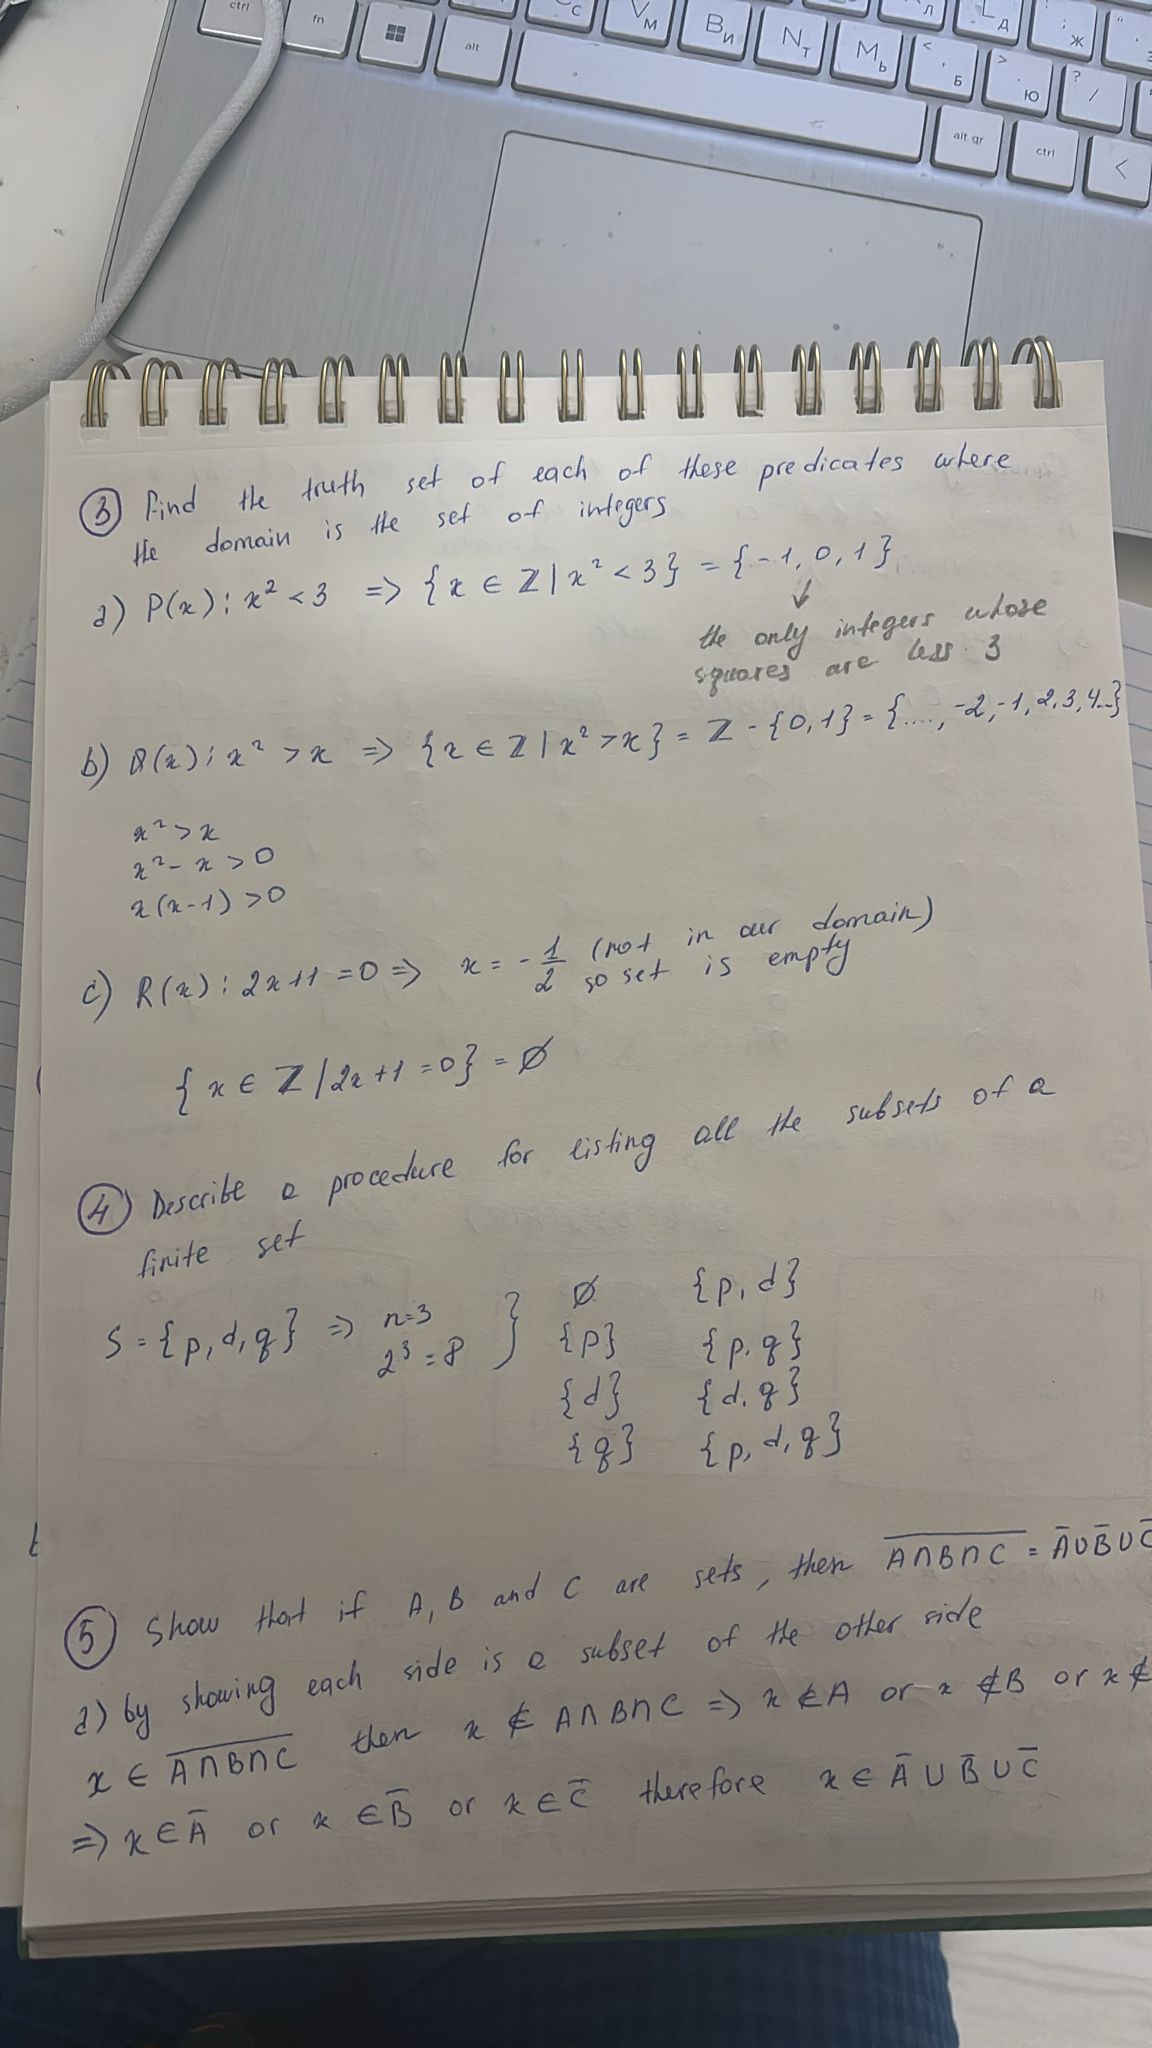 ctrl
fn
alt
C
С
V
М
B
И
N
Т
M
Ь
<
,
Б
>
.
Ю
?
/
Л
L
Д
:
;
Ж
alt gr
ctrl
<
③ Find the truth set of each of these predicates where
the domain is the set of integers
a) P(x): x² < 3 => {x ∈ ℤ | x² < 3} = {-1, 0, 1}
↓
the only integers whose
squares are less 3
b) Q(x): x² > x => {x ∈ ℤ | x² > x} = ℤ - {0, 1} = {...., -2, -1, 2, 3, 4...}
x² > x
x² - x > 0
x(x-1) > 0
c) R(x): 2x+1 = 0 => x = -1/2 (not in our domain)
so set is empty
{x ∈ ℤ | 2x+1 = 0} = ∅
④ Describe a procedure for listing all the subsets of a
finite set
S = {p, d, q} => n=3
2³ = 8
} ∅ {p, d}
{p} {p, q}
{d} {d, q}
{q} {p, d, q}
⑤ Show that if A, B and C are sets, then A̅∩̅B̅∩̅C̅ = A̅ ∪ B̅ ∪ C̅
a) by showing each side is a subset of the other side
x ∈ A̅∩̅B̅∩̅C̅ then x ∉ A∩B∩C => x ∉ A or x ∉ B or x ∉
=> x ∈ A̅ or x ∈ B̅ or x ∈ C̅ therefore x ∈ A̅ ∪ B̅ ∪ C̅